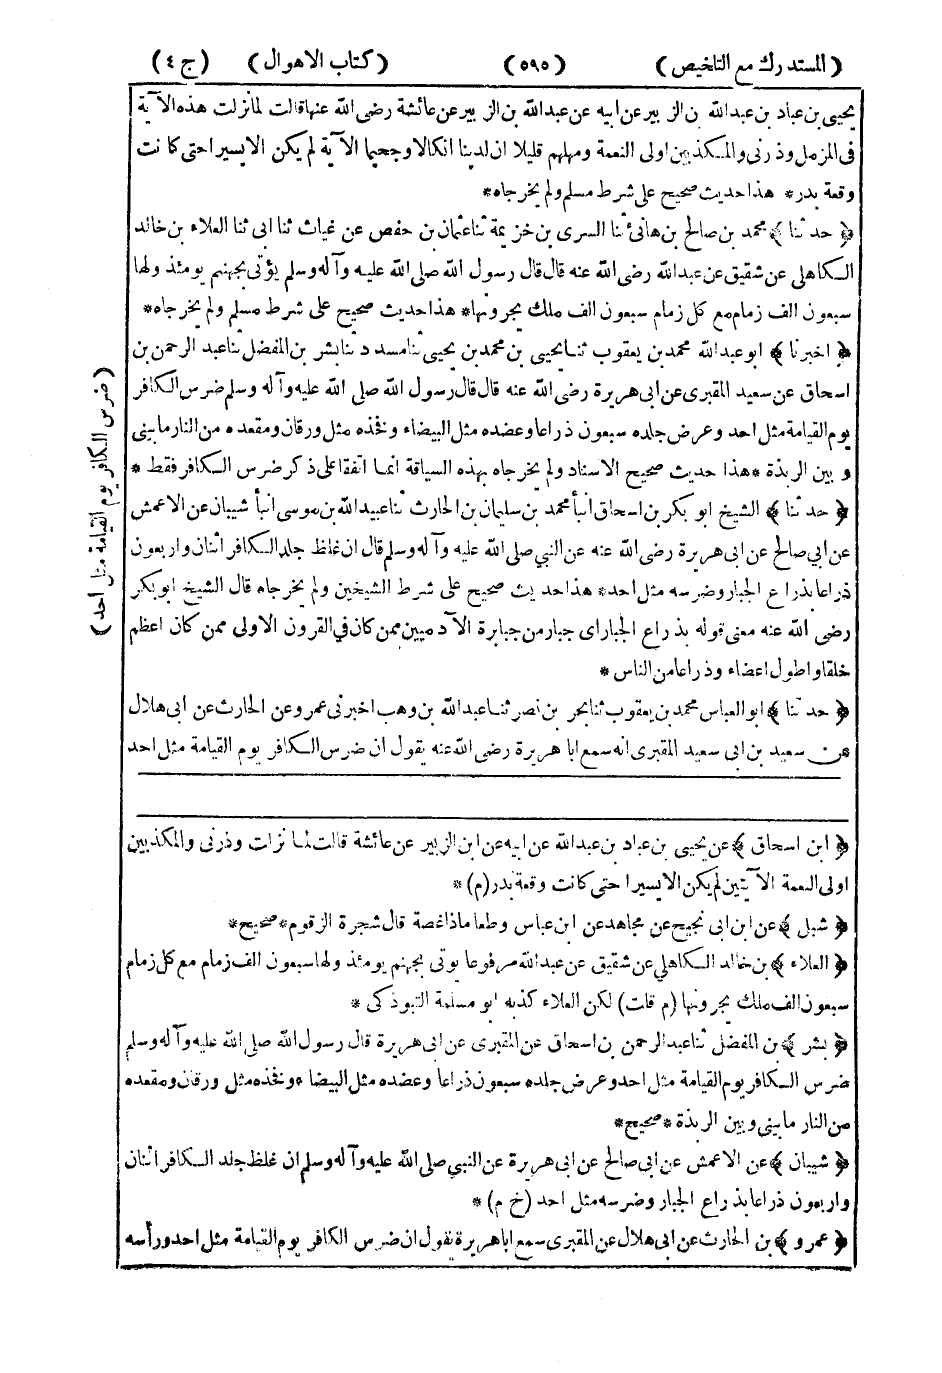 (المستدرك مع التلخيص) (٥٩٥) (كتاب الاهوال) (ج ٤)
يحيى بن عباد بن عبدالله بن الزبير عن ابيه عن عبدالله بن الزبير عن عائشة رضى الله عنها قالت لما نزلت هذه الآية
فى المزمل وذرنى والمكذبين اولى النعمة ومهلهم قليلا ان لدينا انكالا وجحيما الآية لم يكن الا يسير احتى كانت
وقعة بدر* هذا حديث صحيح على شرط مسلم ولم يخرجاه*
﴿ حدثنا ﴾ محمد بن صالح بن هانئ ثنا السرى بن خزيمة ثنا عثمان بن حفص عن غياث ثنا ابى ثنا العلاء بن خالد
الكاهلى عن شقيق عن عبدالله رضى الله عنه قال قال رسول الله صلى الله عليه وآله وسلم يؤتى بجهنم يومئذ ولها
سبعون الف زمام مع كل زمام سبعون الف ملك يجرونها* هذا حديث صحيح على شرط مسلم ولم يخرجاه*
﴿ اخبرنا ﴾ ابو عبدالله محمد بن يعقوب ثنا يحيى بن محمد بن يحيى ثنا مسدد ثنا بشر بن المفضل ثنا عبد الرحمن بن
اسحاق عن سعيد المقبرى عن ابى هريرة رضى الله عنه قال قال رسول الله صلى الله عليه وآله وسلم ضرس الكافر
يوم القيامة مثل احد وعرض جلده سبعون ذراعا وعضده مثل البيضاء وفخذه مثل ورقان ومقعده من النار ما بينى
وبين الربذة *هذا حديث صحيح الاسناد ولم يخرجاه بهذه السياقة انما اتفقا على ذكر ضرس الكافر فقط *
﴿ حدثنا ﴾ الشيخ ابو بكر بن اسحاق انبأ محمد بن سليمان بن الحارث ثنا عبيد الله بن موسى انبأ شيبان عن الاعمش
عن ابى صالح عن ابى هريرة رضى الله عنه عن النبي صلى الله عليه وآله وسلم قال ان غلظ جلد الكافر اثنان واربعون
ذراعا بذراع الجبار وضرسه مثل احد* هذا حديث صحيح على شرط الشيخين ولم يخرجاه قال الشيخ ابو بكر
رضى الله عنه معنى قوله بذراع الجبار اى جبار من جبابرة الآدميين ممن كان فى القرون الاولى ممن كان اعظم
خلقا واطول اعضاء وذراعا من الناس *
﴿ حدثنا ﴾ ابو العباس محمد بن يعقوب ثنا بحر بن نصر ثنا عبدالله بن وهب اخبرنى عمرو عن الحارث عن ابى هلال
عن سعيد بن ابى سعيد المقبرى انه سمع ابا هريرة رضى الله عنه يقول ان ضرس الكافر يوم القيامة مثل احد
(ضرس الكافر يوم القيامة مثل احد)
﴿ ابن اسحاق ﴾ عن يحيى بن عباد بن عبدالله عن ابيه عن ابن الزبير عن عائشة قالت لما نزلت وذرنى والمكذبين
اولى النعمة الآيتين لم يكن الا يسير احتى كانت وقعة بدر (م) *
﴿ شبل ﴾ عن ابن ابى نجيح عن مجاهد عن ابن عباس وطعاما ذا غصة قال شجرة الزقوم *صحيح*
﴿ العلاء ﴾ بن خالد الكاهلى عن شقيق عن عبدالله مرفوعا يوتى بجهنم يومئذ ولها سبعون الف زمام مع كل زمام
سبعون الف ملك يجرونها (م قلت) لكن العلاء كذبه ابو مسلمة التبوذكى *
﴿ بشر ﴾ بن المفضل ثنا عبد الرحمن بن اسحاق عن المقبرى عن ابى هريرة قال رسول الله صلى الله عليه وآله وسلم
ضرس الكافر يوم القيامة مثل احد وعرض جلده سبعون ذراعا وعضده مثل البيضاء *وفخذه مثل ورقان ومقعده
من النار ما بينى وبين الربذة *صحيح*
﴿ شيبان ﴾ عن الاعمش عن ابى صالح عن ابى هريرة عن النبي صلى الله عليه وآله وسلم ان غلظ جلد الكافر اثنان
واربعون ذراعا بذراع الجبار وضرسه مثل احد (خ م) *
﴿ عمرو ﴾ بن الحارث عن ابى هلال عن المقبرى سمع ابا هريرة يقول ان ضرس الكافر يوم القيامة مثل احد ورأسه